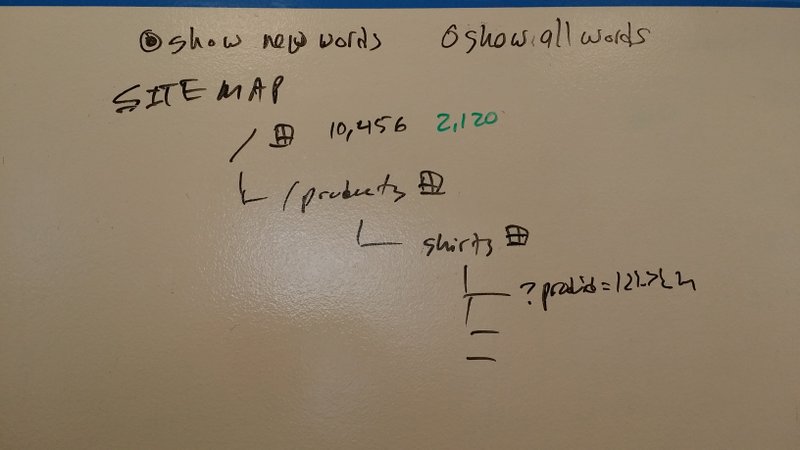 show new words show all words
SITE MAP
/ 10,456 2,120
/products
shirts
?prodid=